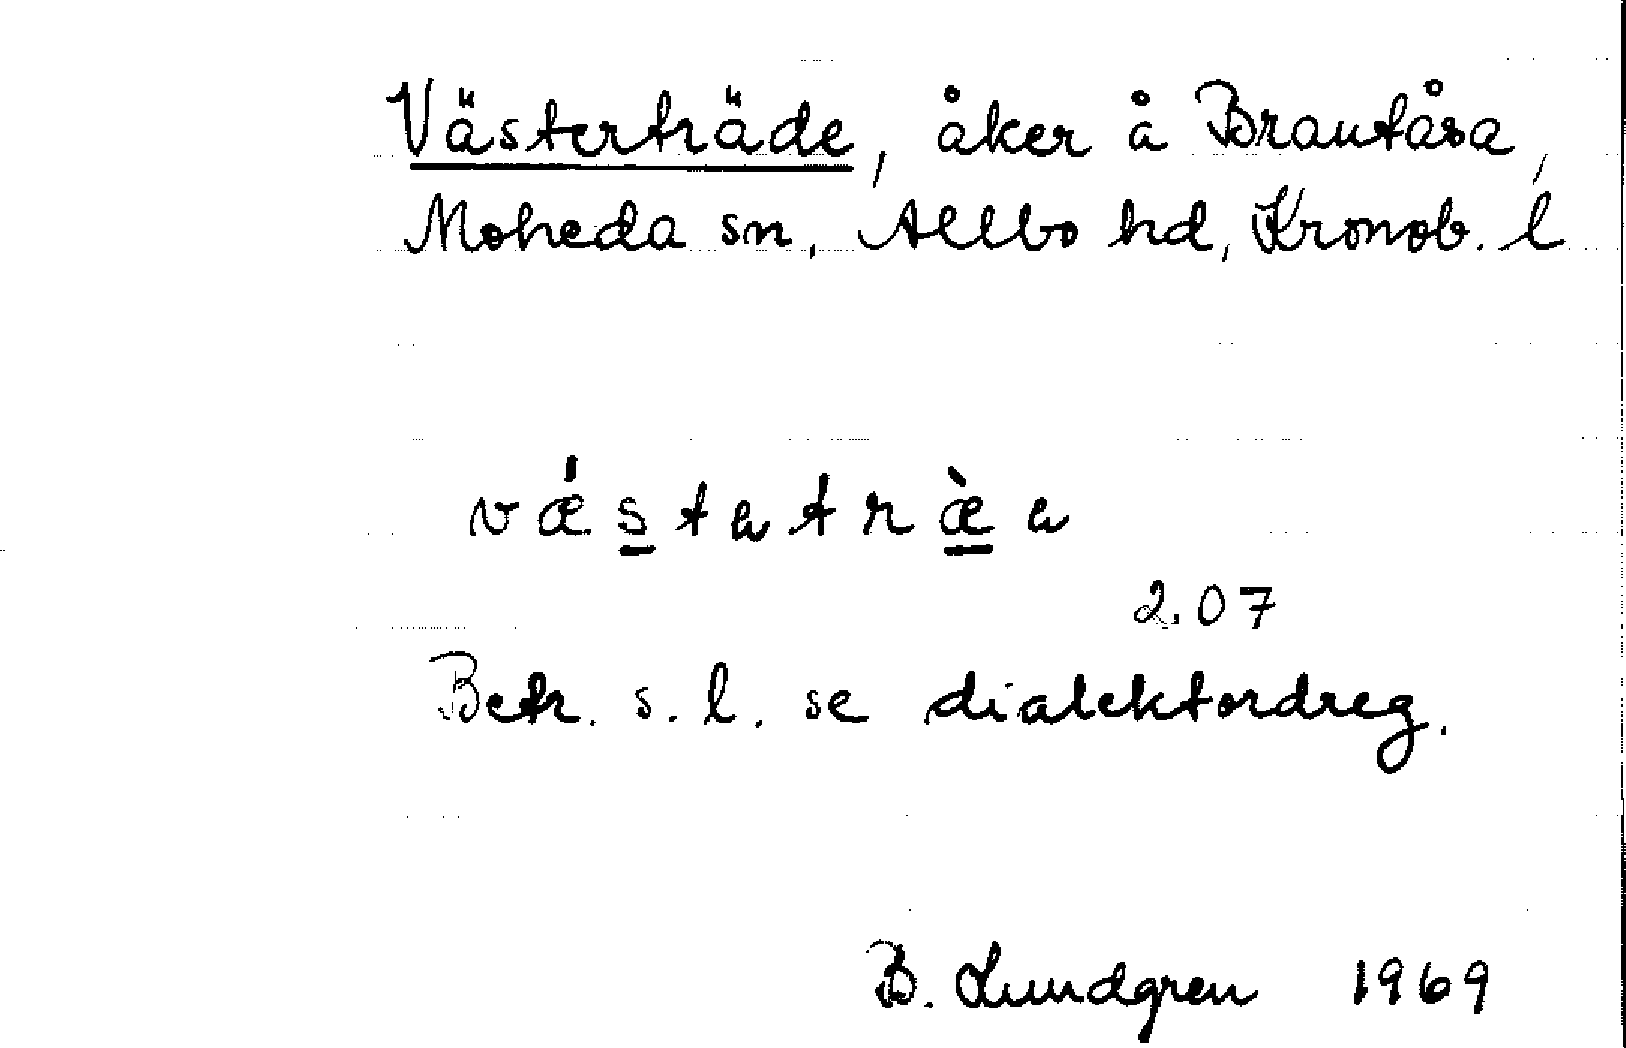 Västerträde, åker å Brautåsa,
Moheda sn, Allbo hd, Kronob. l
vǽs̲tatræ̲̀a
2.07
Betr. s. l. se dialektordreg.
B. Lundgren 1969